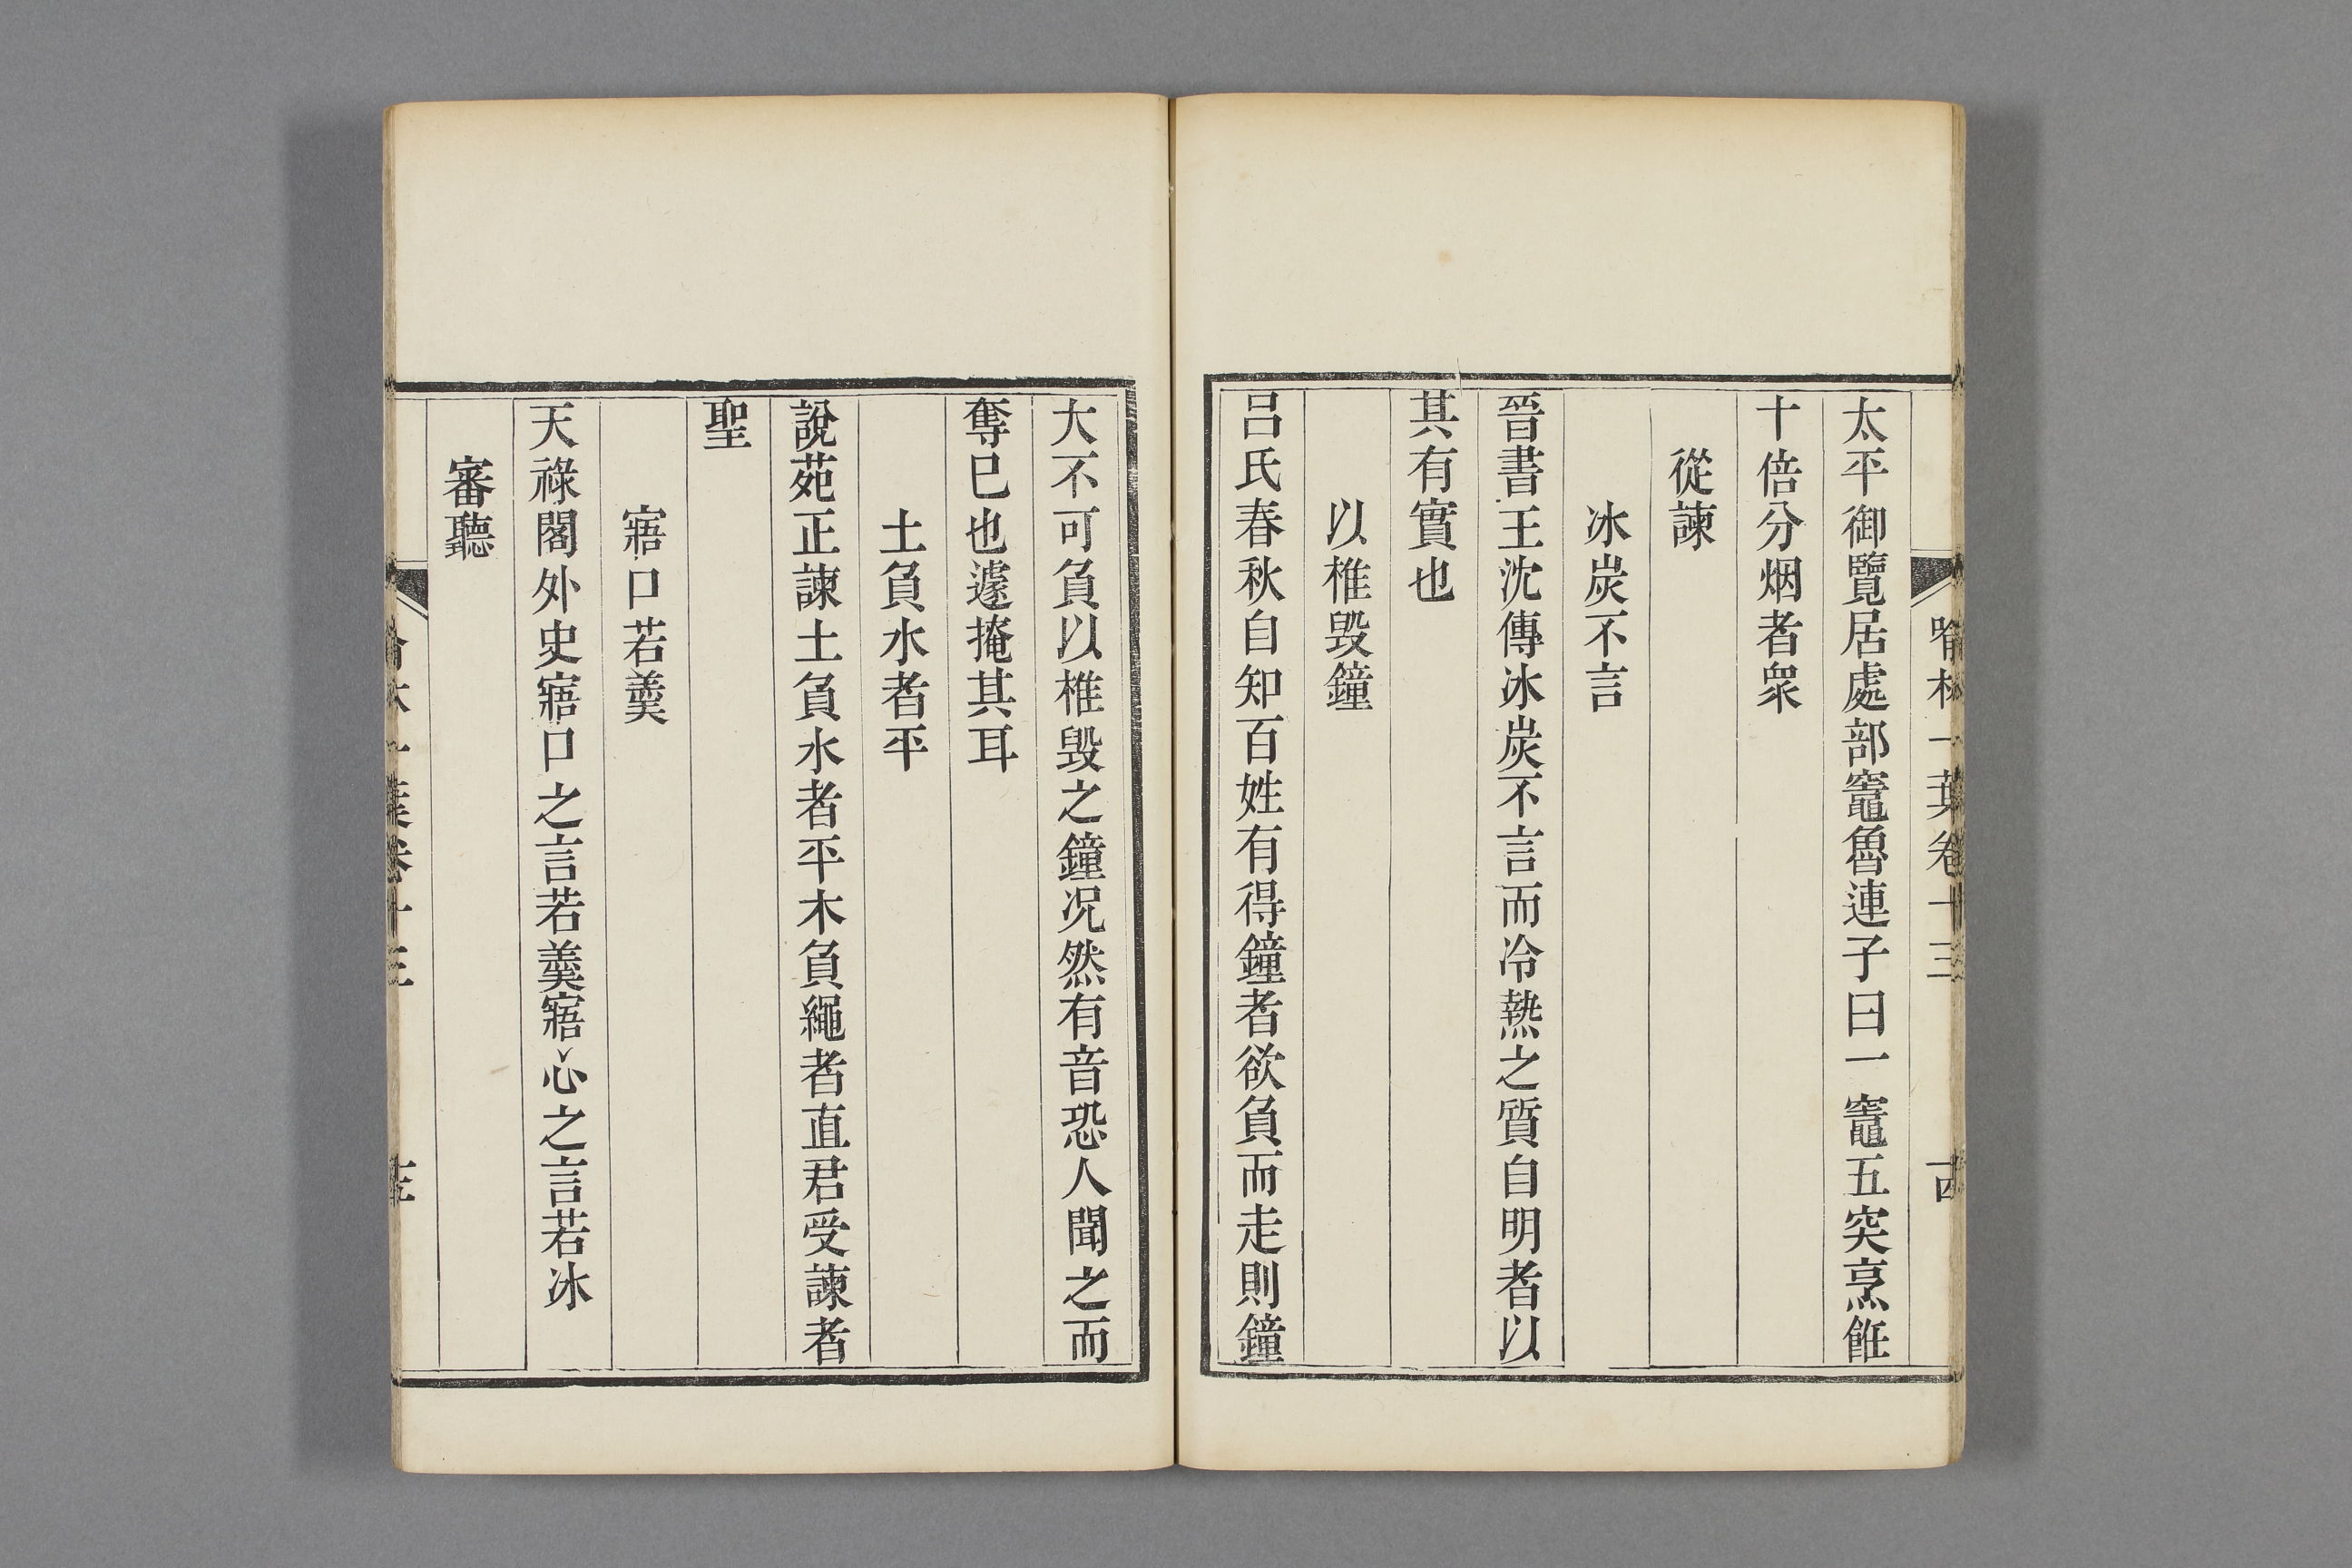 太平御覽居處部竈魯連子曰一竈五突烹飪
十倍分烟者眾
從諫
冰炭不言
晉書王沈傳冰炭不言而冷熱之質自明者以
其有實也
以椎毀鐘
呂氏春秋自知百姓有得鐘者欲負而走則鐘
大不可負以椎毀之鐘况然有音恐人聞之而
奪巳也遽掩其耳
土負水者平
說苑正諫土負水者平木負繩者直君受諫者
聖
寤口若羹
天祿閣外史寤口之言若羹寤心之言若冰
審聽
喻林一葉卷十三